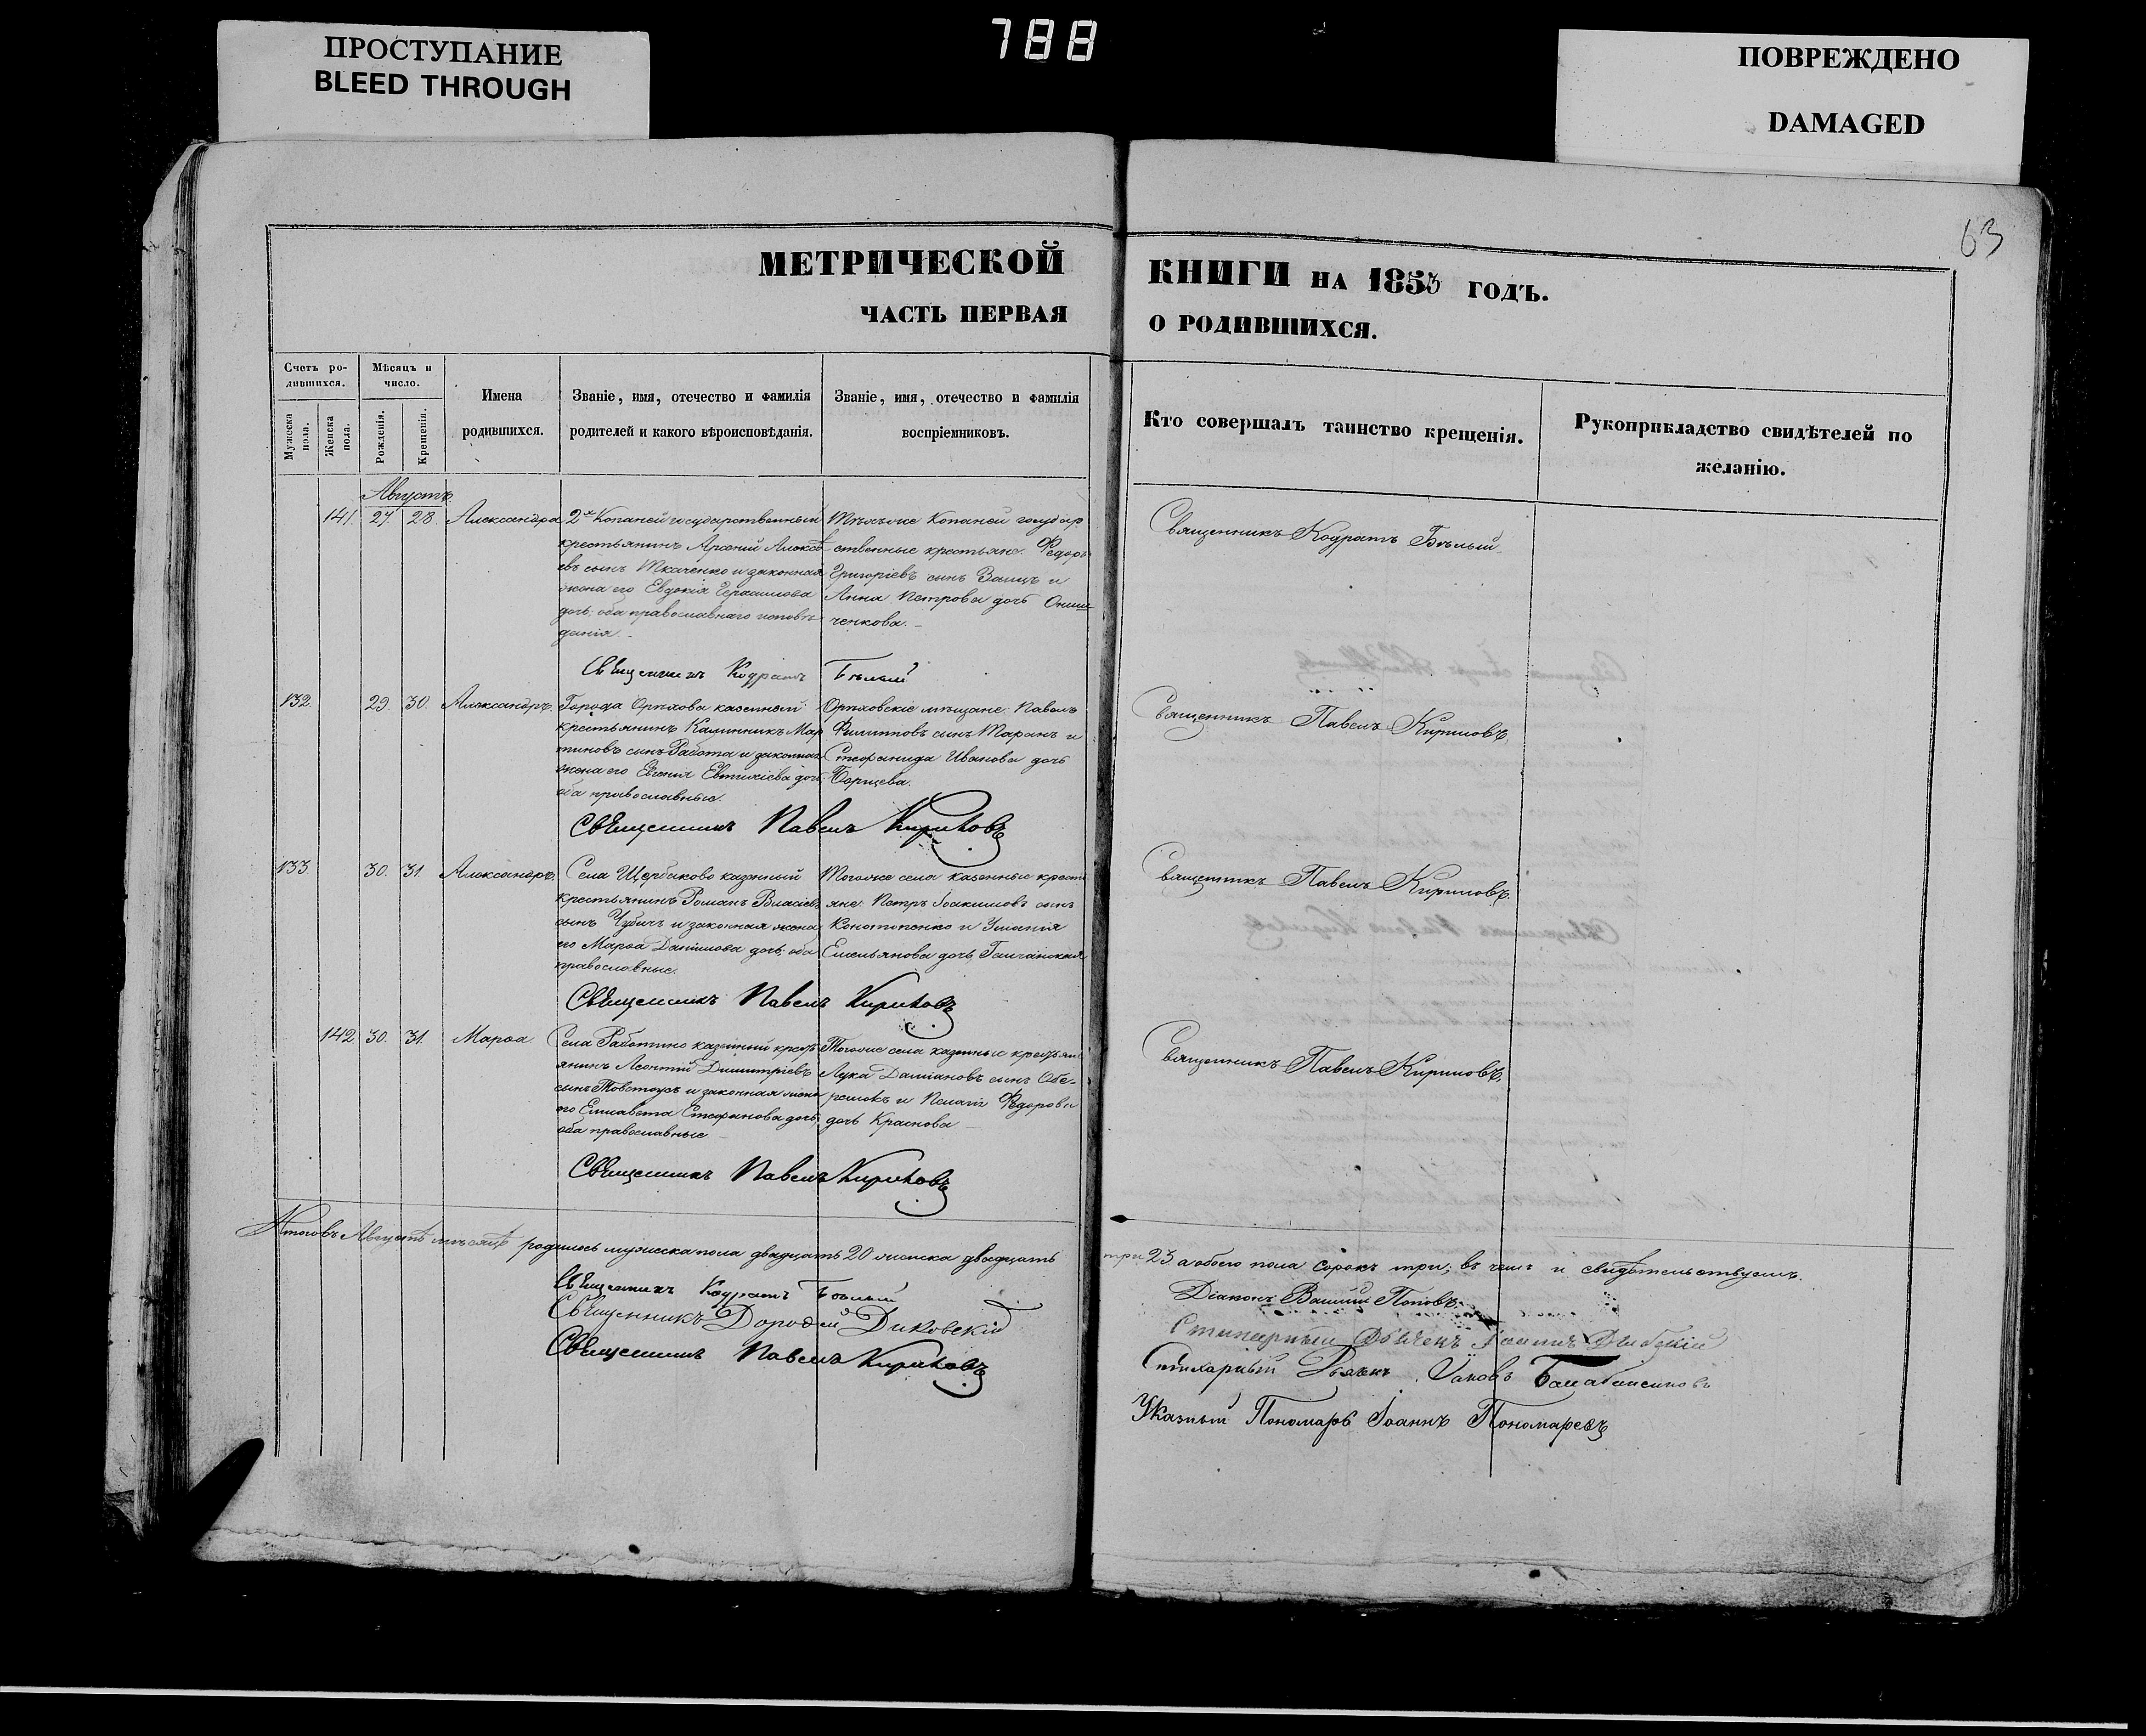 ПРОСТУПАНИЕ
BLEED THROUGH
788
ПОВРЕЖДЕНО
DAMAGED
63
МЕТРИЧЕСКОЙ
КНИГИ НА 1853 ГОДЪ.
ЧАСТЬ ПЕРВАЯ
О РОДИВШИХСЯ.
Счетъ ро-
дившихся.
Мужеска
пола.
Женска
пола.
Мѣсяцъ и
число.
Рожденія.
Крещенія.
Имена
родившихся.
Званіе, имя, отечество и фамилія
родителей и какого вѣроисповѣданія.
Званіе, имя, отечество и фамилія
воспріемниковъ.
Кто совершалъ таинство крещенія.
Рукоприкладство свидѣтелей по
желанію.
Августъ
141. 27. 28. Александра
2х Копаней государственный
крестьянинъ Арсений Алексѣ
евъ сынъ Ткаченко и законная
жена его Евдокія Герасимова
дочь, оба православнаго исповѣ
данія.
Тѣхъ же Копаней государ
ственные крестьяне: Федоръ
Григоріевъ сынъ Заицъ и
Анна Петрова дочь Онищ
ченкова.
Священникъ Кодратъ Бѣлый
Священникъ Кодратъ Бѣлый
132. 29. 30. Александръ.
Города Орѣхова казенный
крестьянинъ Калинникъ Мар
тиновъ сынъ Работа и законная
жена его Евгенія Евтихіева дочь,
оба православные.
Орѣховскіе мѣщане: Павелъ
Филипповъ сынъ Таранъ и
Стефанида Иванова дочь
Борщева.
Священникъ Павелъ Кириловъ.
Священникъ Павелъ Кириловъ
133 30. 31. Александръ.
Села Щербаково казенный
крестьянинъ Романъ Власіевъ
сынъ Чубичъ и законная жена
его Марѳа Данілова дочь, оба
православные.
Того же села казенные крестья
яне: Петръ Іоакимовъ сынъ
Конотопенко и Уліанія
Емельянова дочь
Священникъ Павелъ Кириловъ.
Священникъ Павелъ Кириловъ
142 30. 31. Марѳа
Села Работино казенный кресть
янинъ Леонтій Димитріевъ
сынъ Товстоусъ и законная жена
его Елисавета Стефанова дочь,
оба православные
Того же села казенные крестьяне
Лука Даміановъ сынъ
и Пелагія Федорова
дочь Краснова
Священникъ Павелъ Кириловъ.
Священникъ Павелъ Кириловъ
Итого въ Августѣ мѣсяцѣ родилось мужеска пола двадцать 20 женска двадцать
три 23 а обоего пола сорокъ три; въ чемъ и свидѣтельствуемъ.
Священникъ Кодратъ Бѣлый
Священникъ Дороѳей Диковскій
Священникъ Павелъ Кириловъ
Діаконъ Попов
Стихарный Дьячекъ Іоаннъ
Стихарный Дьячекъ Іаковъ
Указный Пономарь Іоаннъ Пономаревъ